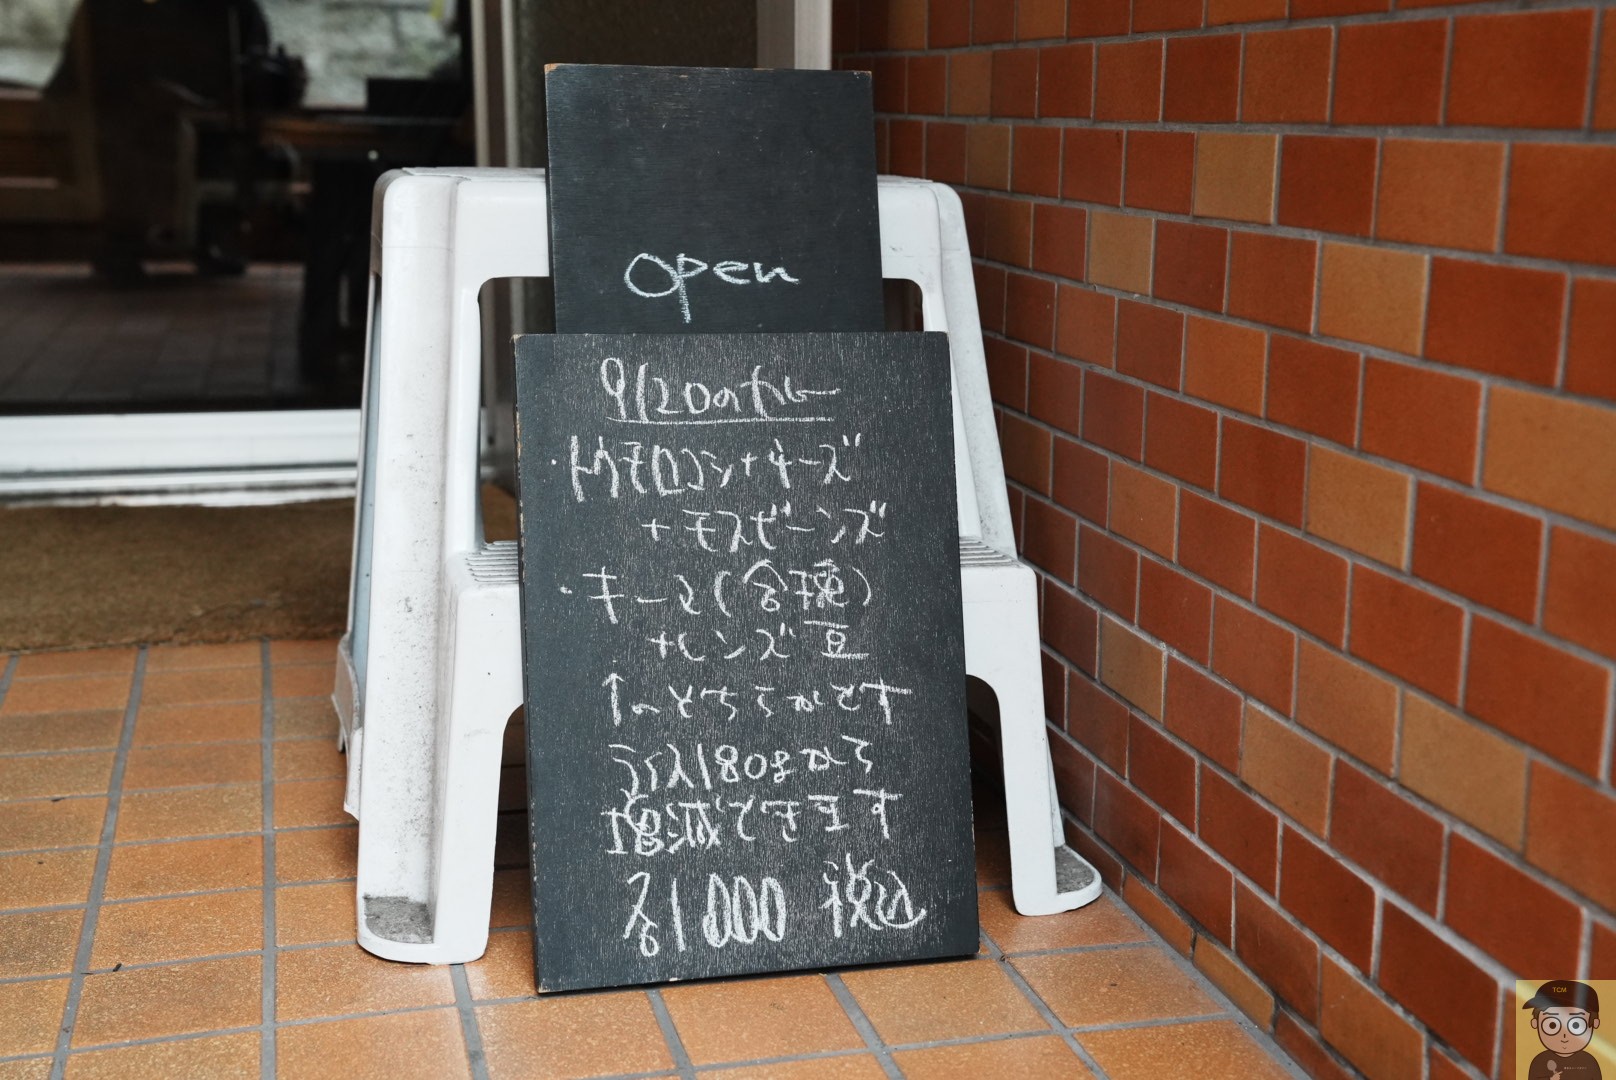 open
9/20のカレー
・トウモロコシ+チーズ
+モスビーンズ
・キーマ(合挽)
+レンズ豆
↑のどちらかです
ライス180gから
増減できます
各1000 税込
TCM